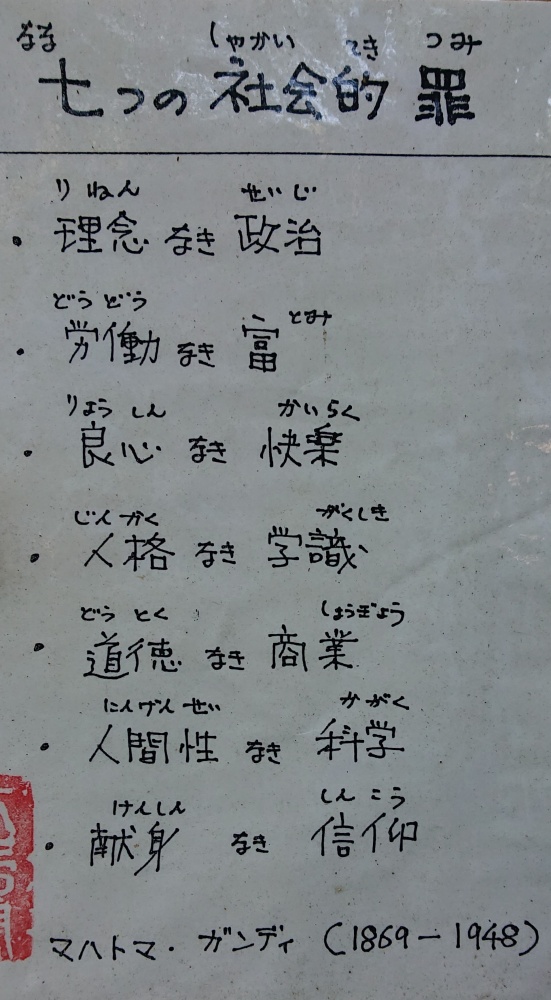 なな しゃかい てき つみ
七つの 社会的 罪
りねん せいじ
・理念 なき 政治
どうどう とみ
・労働 なき 富
りょうしん かいらく
・良心 なき 快楽
じんかく がくしき
・人格 なき 学識
どうとく しょうぎょう
・道徳 なき 商業
にんげんせい かがく
・人間性 なき 科学
けんしん しんこう
・献身 なき 信仰
マハトマ・ガンディ (1869-1948)